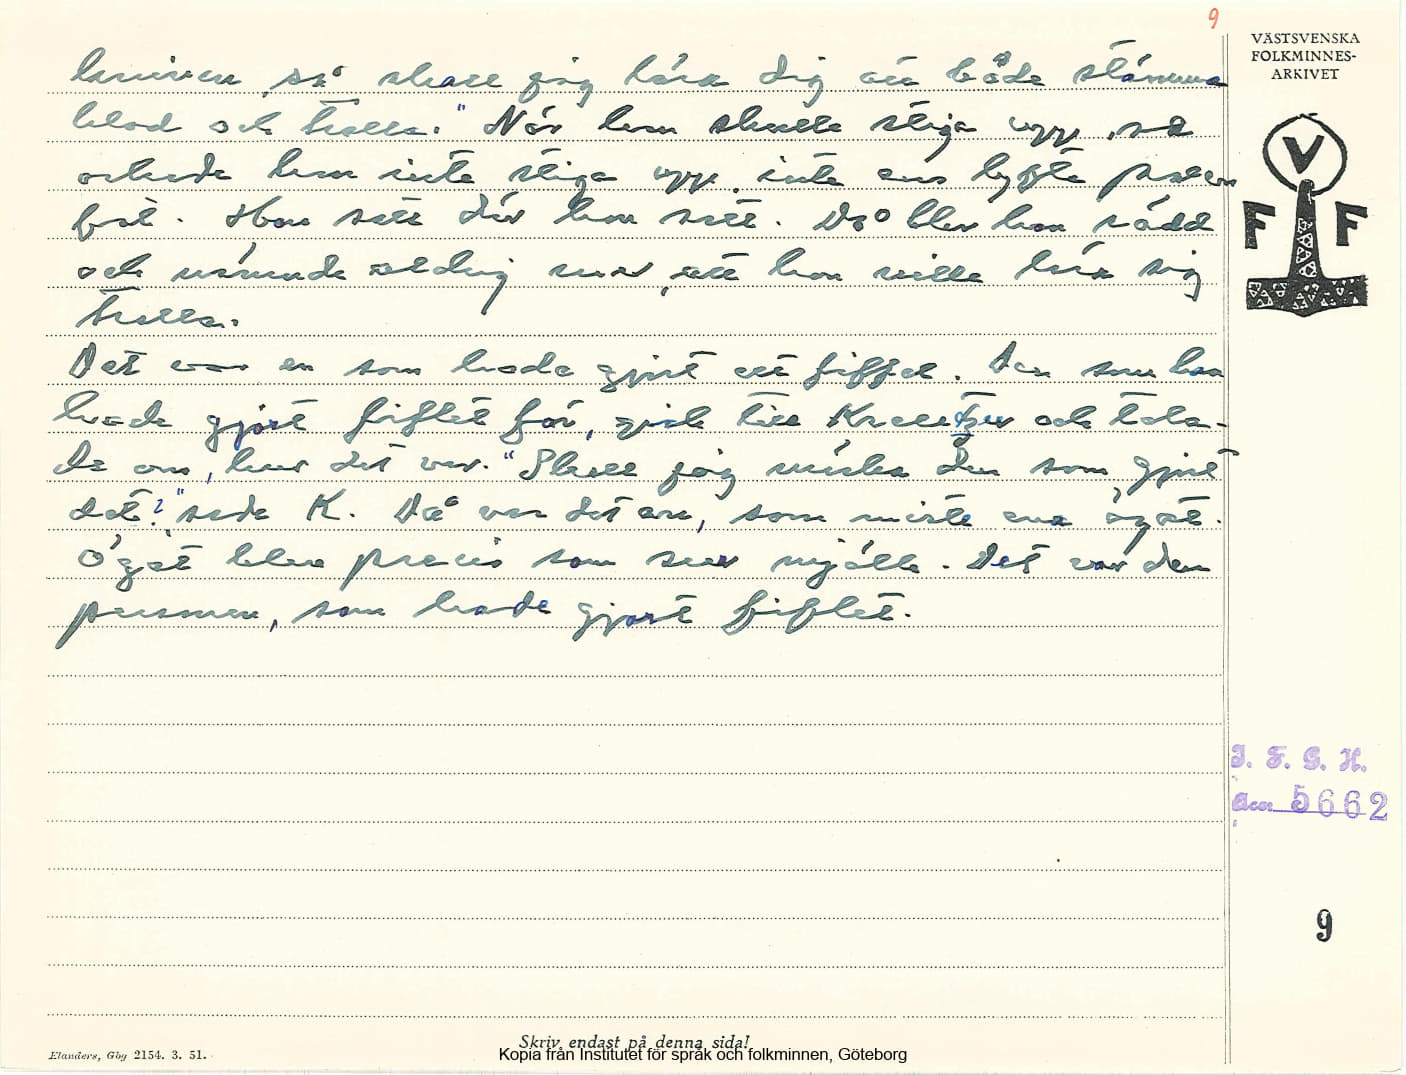 9
VÄSTSVENSKA
FOLKMINNES-
ARKIVET
V
F F
kniven, så skall jag lära dig att både stämma
blod och trolla." När hon skulle stiga upp, så
orkade hon inte stiga upp, inte ens lyfta
fot. Hon satt där hon satt. Då blev hon rädd
och nämnde aldrig mer, att hon ville lära sig
trolla.
Det var en som hade gjort ett fifflet. Den som han
hade gjort fifflet för, gick till och tala-
de om, hur det var. "Skall jag märka den som gjort
det?" sade K. Då var det en, som miste ena ögat.
Ögat blev precis som sur mjölk. Det var den
personen, som hade gjort fifflet.
I. F. G. H.
Acc 5662
9
Skriv endast på denna sida!
Elanders, Gbg 2154. 3. 51.
Kopia från Institutet för språk och folkminnen, Göteborg